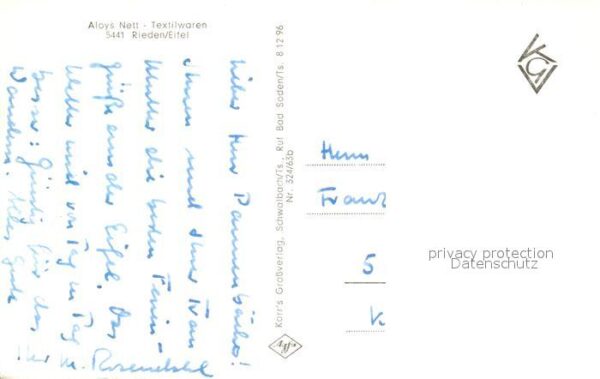 Aloys Nett - Textilwaren
5441 Rieden/Eifel
Lieber Herr Dannenbücher!
Ihnen und Ihrer Frau
Mutter die besten Ferien-
grüße aus der Eifel. Das
Wetter wird von Tag zu Tag
besser: Günstig für das
Wandern. Alles Gute
Ihr M. Rosendahl
Korr's Großverlag, Schwalbach/Ts., Ruf Bad Soden/Ts. 8 12 96
Nr. 324/63b
KGV
Herrn
Franz
5
K
privacy protection
Datenschutz